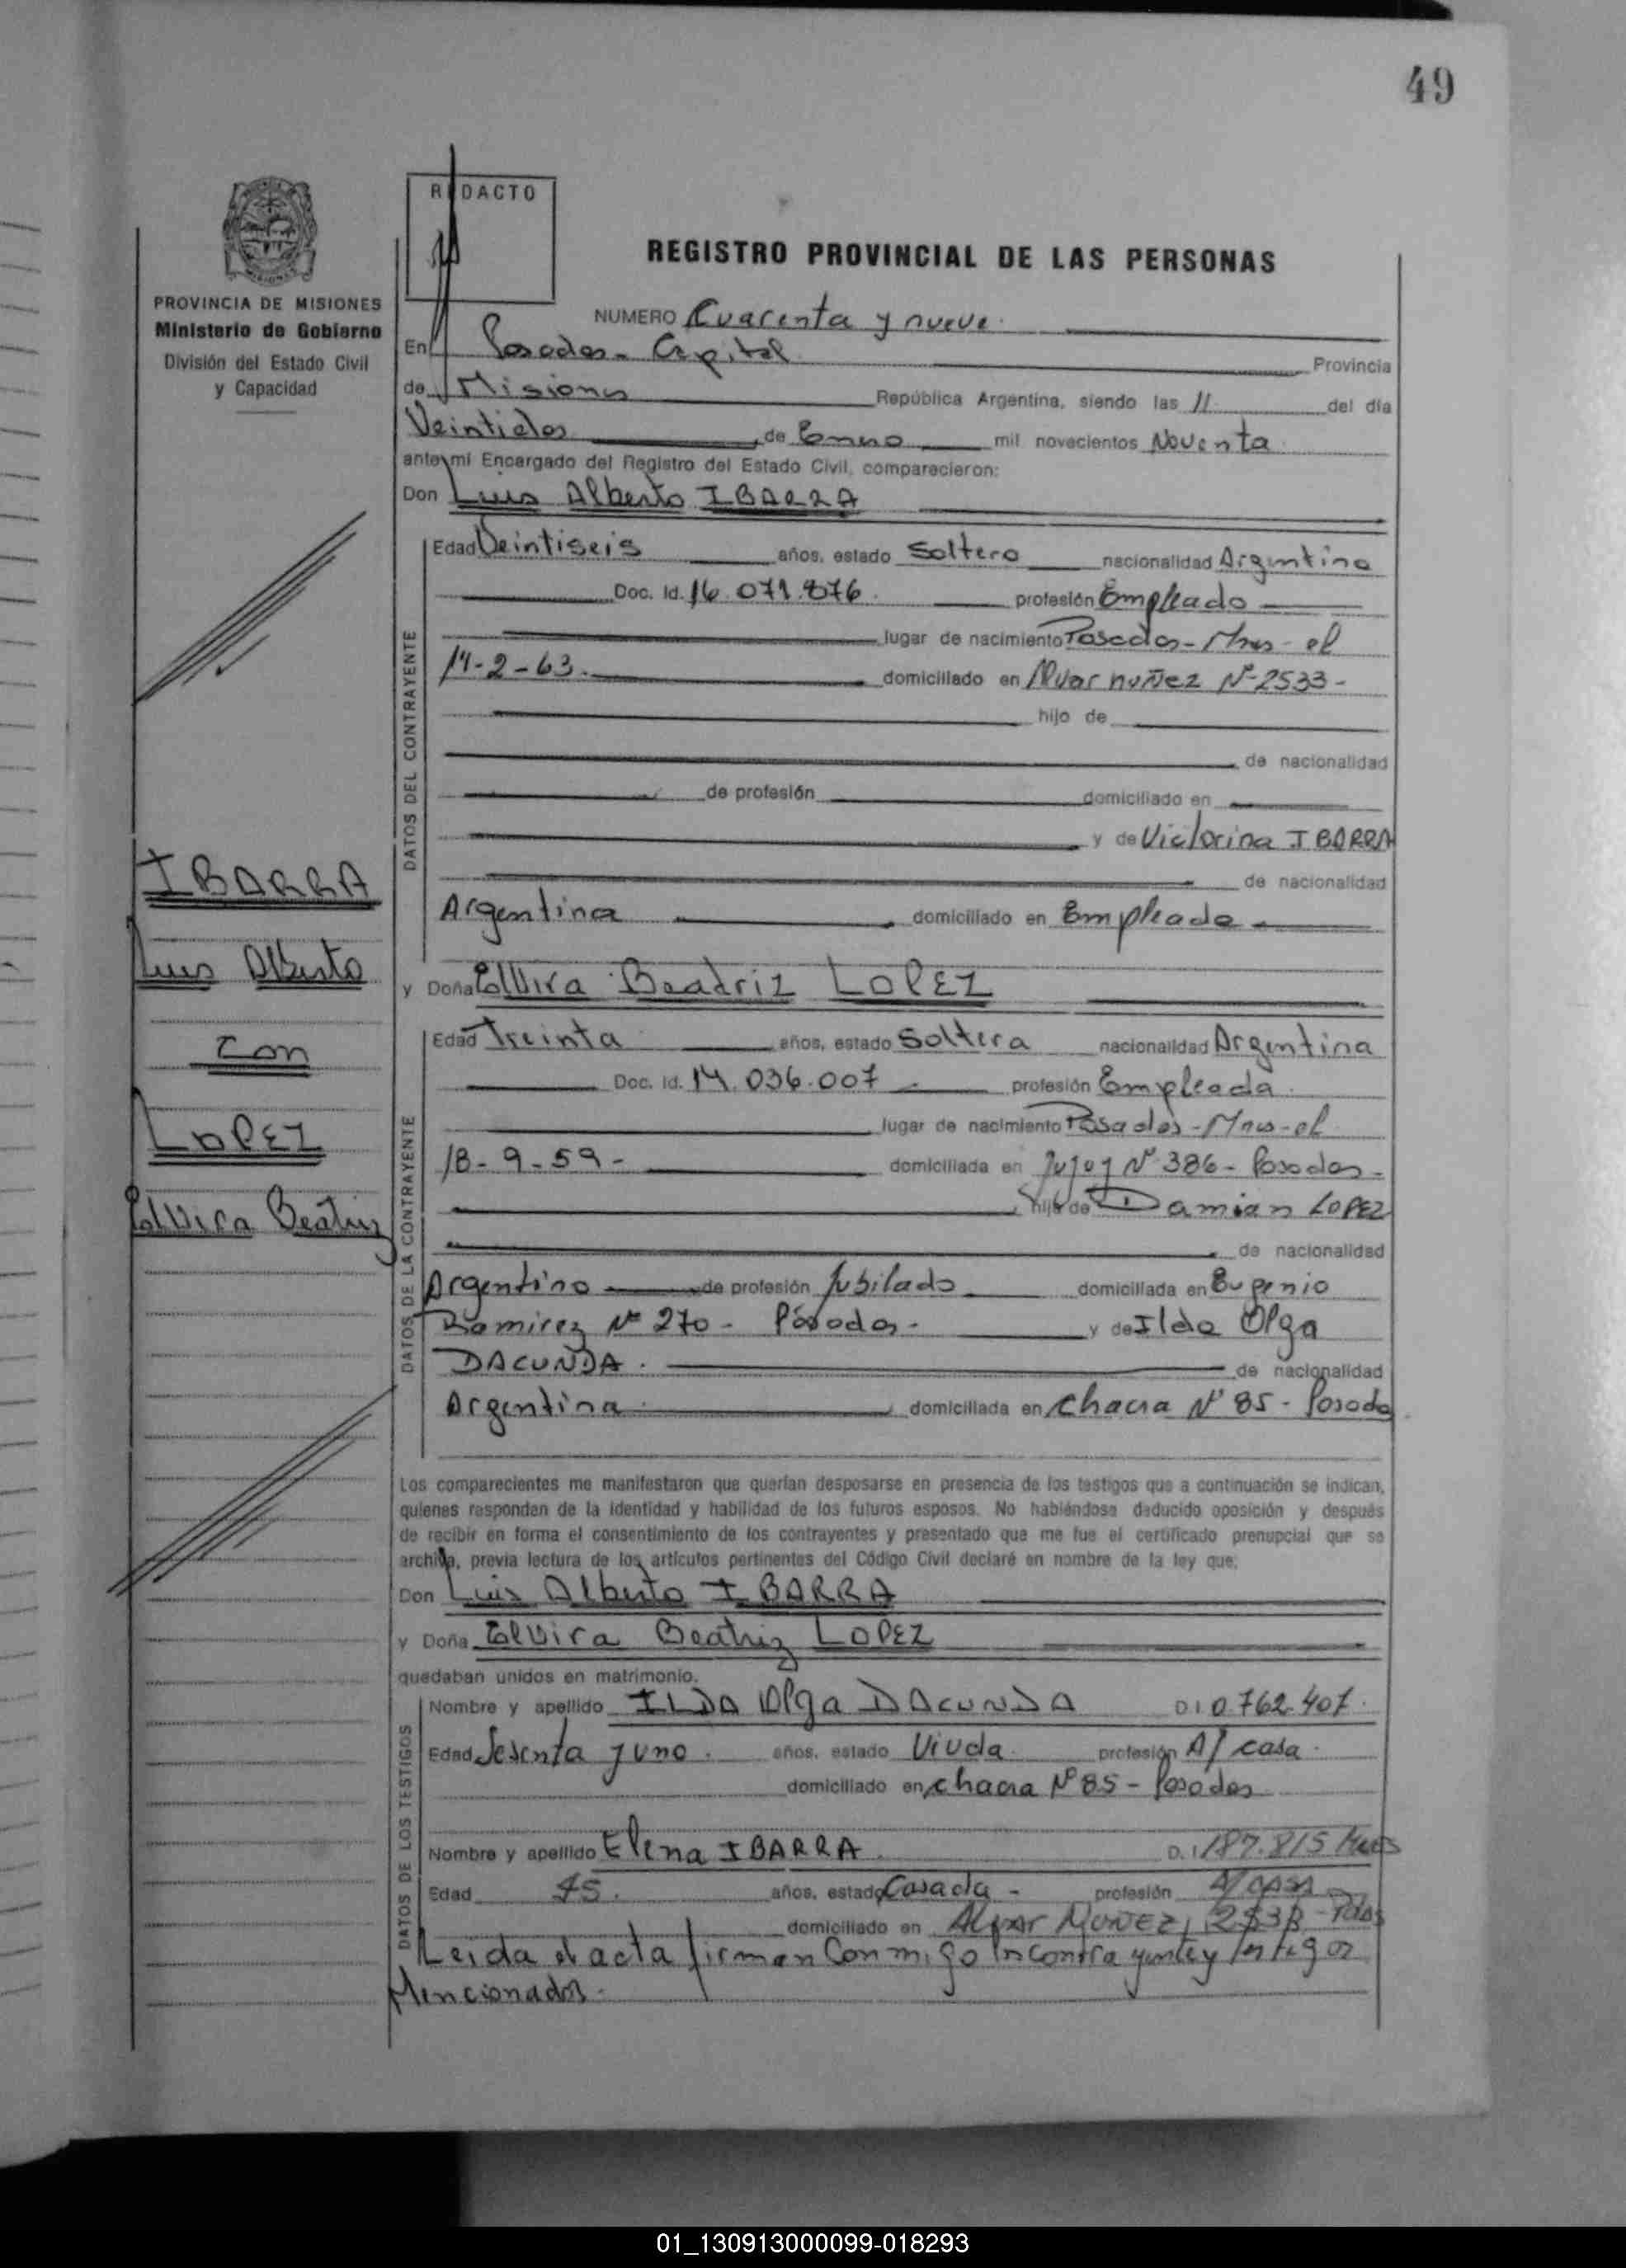 49
REDACTO
REGISTRO PROVINCIAL DE LAS PERSONAS
PROVINCIA DE MISIONES
Ministerio de Gobierno
División del Estado Civil
y Capacidad
NUMERO Cuarenta y nueve.
En Posadas - Capital Provincia
de Misiones República Argentina, siendo las 11 del día
Veintidos de Enero mil novecientos Noventa
ante mi Encargado del Registro del Estado Civil, comparecieron:
Don Luis Alberto IBARRA
DATOS DEL CONTRAYENTE
Edad Veintiseis años, estado Soltero nacionalidad Argentino
Doc. Id. 16.071.876. profesión Empleado
lugar de nacimiento Posadas - Mnes - el
14-2-63. domiciliado en Alvar nuñez Nº 2533 -
hijo de
de nacionalidad
de profesión domiciliado en
y de Victorina IBARRA
de nacionalidad
Argentina domiciliado en Empleada
IBARRA
Luis Alberto
con
LOPEZ
Elvira Beatriz
y Doña Elvira Beatriz LOPEZ
DATOS DE LA CONTRAYENTE
Edad Treinta años, estado Soltera nacionalidad Argentina
Doc. Id. 14.036.007 profesión Empleada.
lugar de nacimiento Posadas - Mnes - el
18-9-59- domiciliada en Jujuy Nº 386 - Posadas -
hija de Damian LOPEZ
de nacionalidad
Argentino de profesión Jubilado domiciliada en Eugenio
Ramirez Nº 270 - Posadas - y de Ilda Olga
DACUNDA. de nacionalidad
Argentina domiciliada en Chacra Nº 85 - Posadas
Los comparecientes me manifestaron que querían desposarse en presencia de los testigos que a continuación se indican,
quienes responden de la identidad y habilidad de los futuros esposos. No habiéndose deducido oposición y después
de recibir en forma el consentimiento de los contrayentes y presentado que me fue el certificado prenupcial que se
archiva, previa lectura de los artículos pertinentes del Código Civil declaré en nombre de la ley que:
Don Luis Alberto IBARRA
y Doña Elvira Beatriz LOPEZ
quedaban unidos en matrimonio.
DATOS DE LOS TESTIGOS
Nombre y apellido ILDA Olga DACUNDA D.I 0.762.407.
Edad Sesenta y uno. años, estado Viuda. profesión A/ casa.
domiciliado en chacra Nº 85 - Posadas
Nombre y apellido Elena IBARRA. D.I 187.815 Mnes
Edad 45. años, estado Casada - profesión A/ CASA
domiciliado en ALVAR NUÑEZ, - Pdas
Leida el acta firman Conmigo los contrayentes y testigos
Mencionados.
01_130913000099-018293